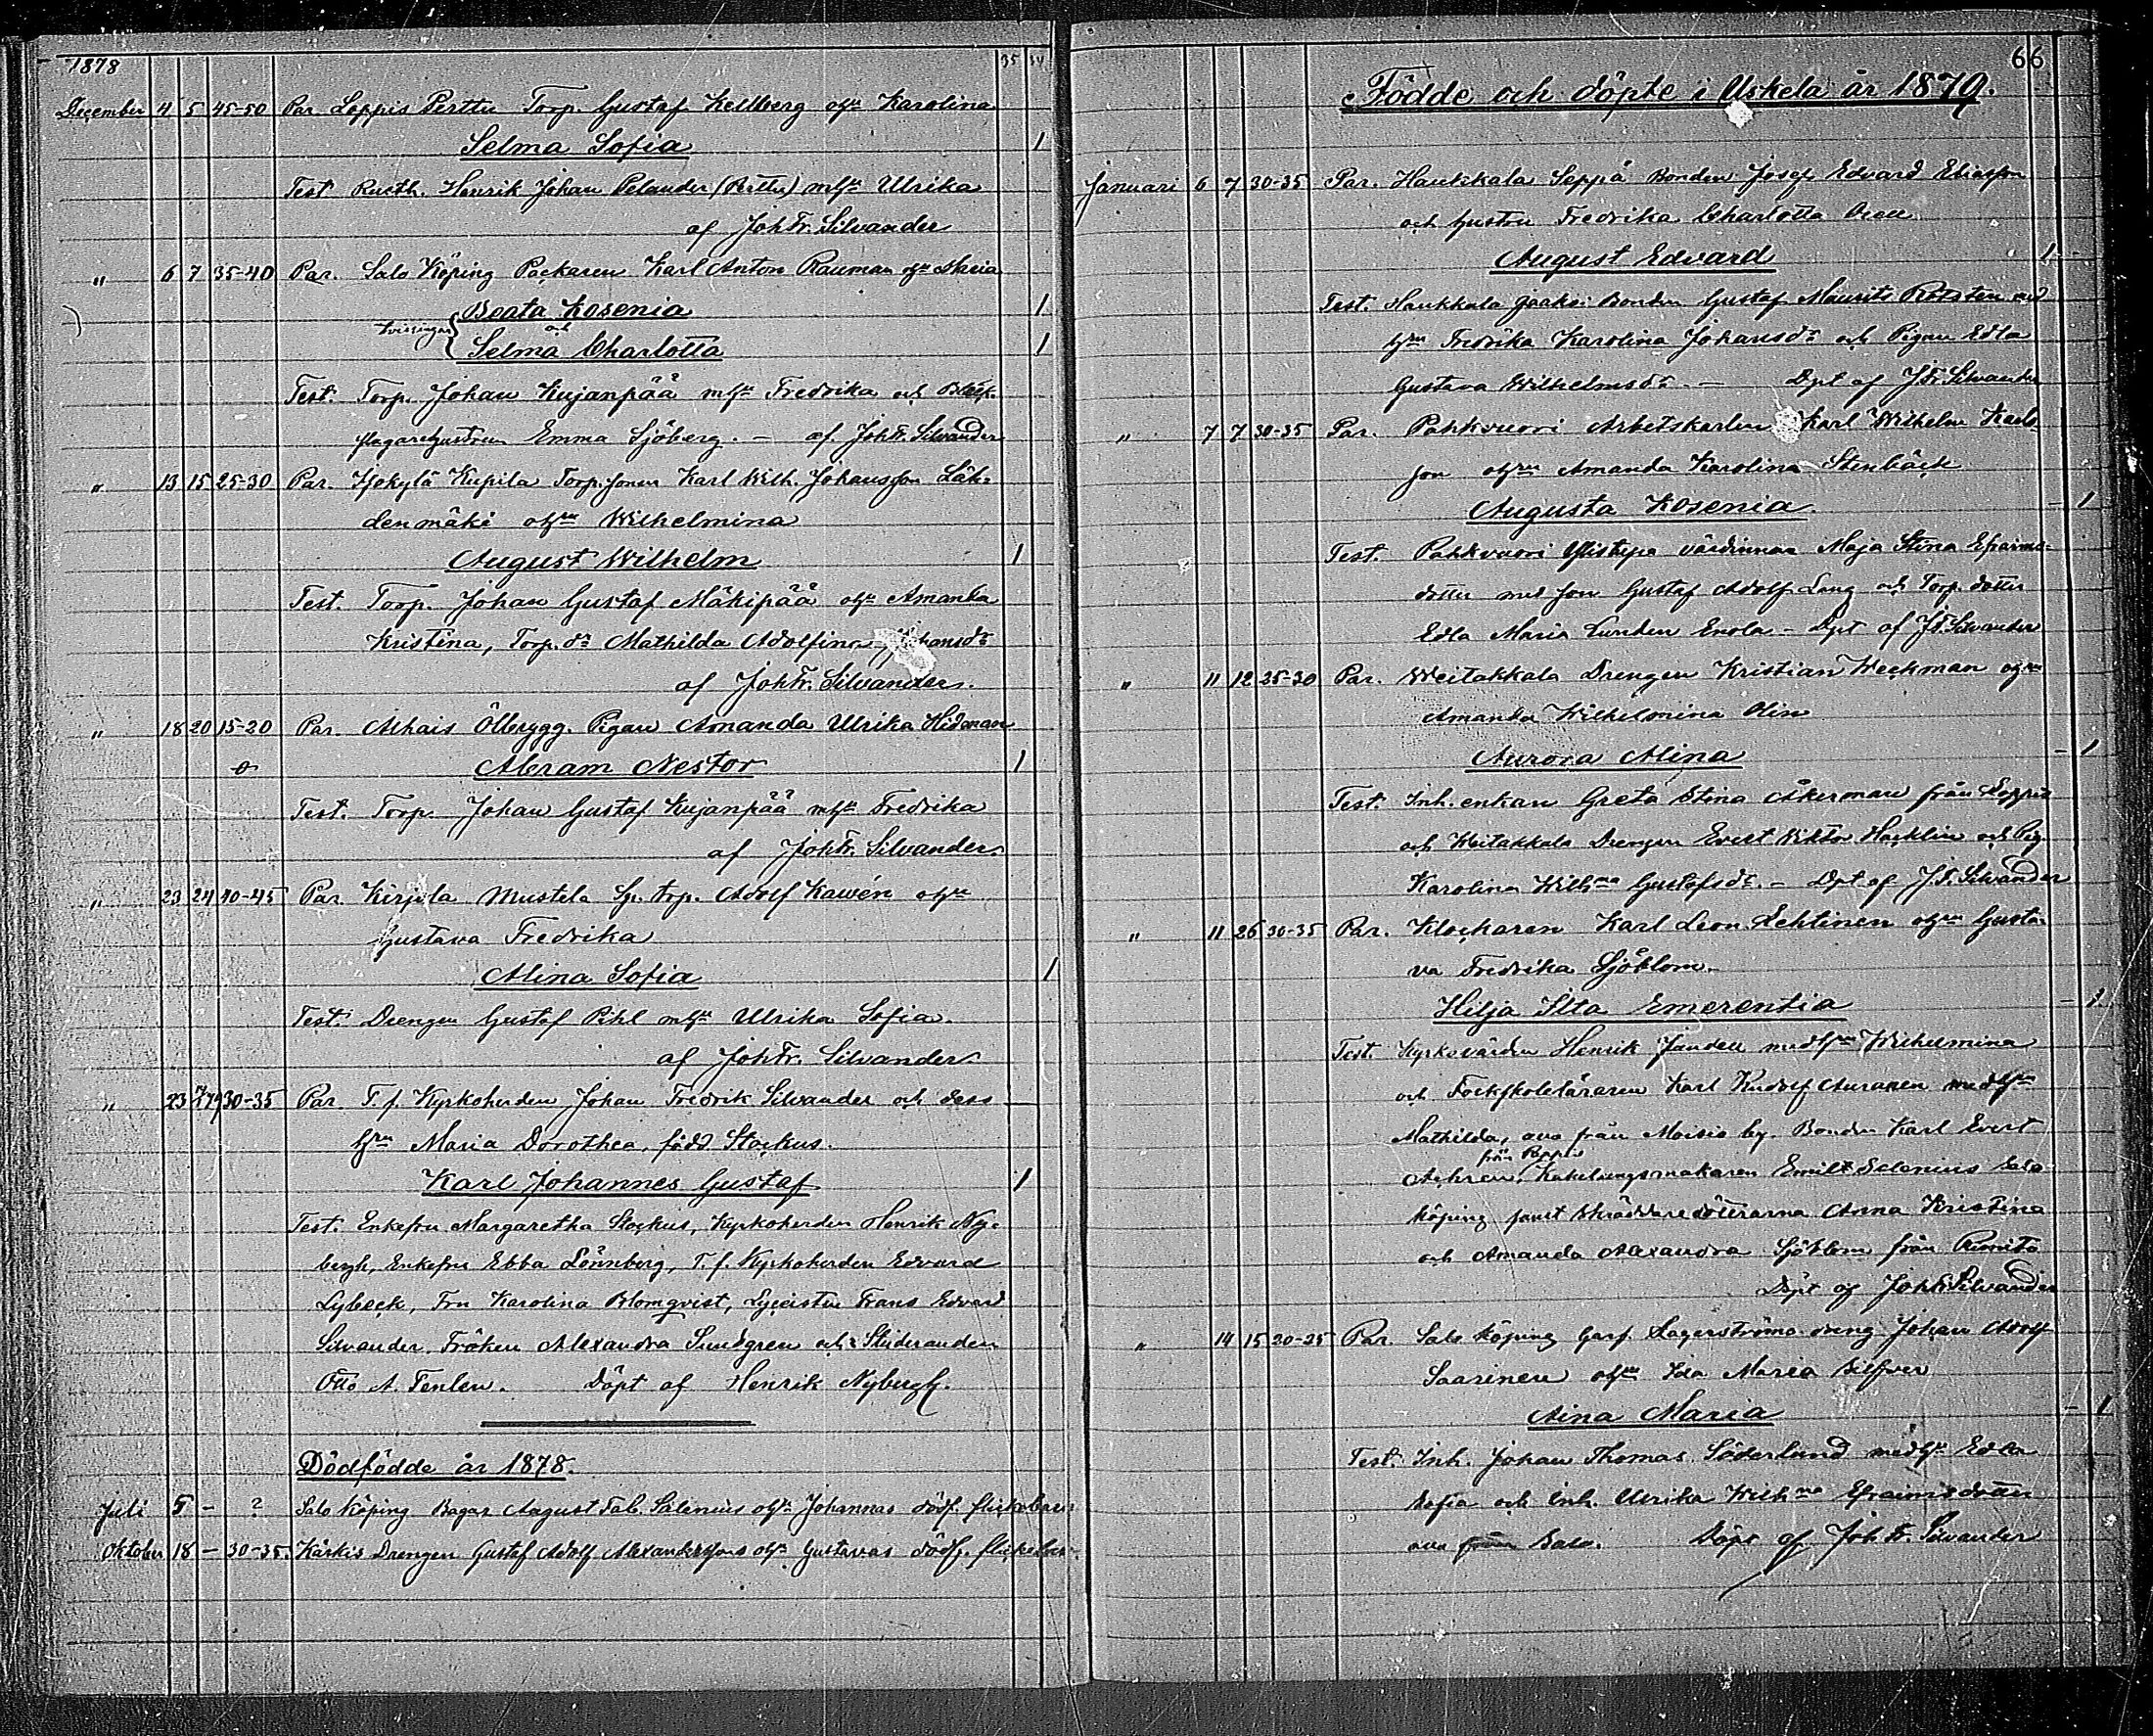 1878
35
December 4 5 45-50 Par. Loppis Perttu Torp. Gustaf Kellberg ohu Karolina
Selma Sofia 1
Test. Rusth. Henrik Johan Pelander (Perttu) mhu Ulrika
af Joh Fr. Silvander
" 6 7 35-40 Par. Salo Köping Packaren Karl Anton Rauman ohu Maria
Beata Kosenia 1
tvillingar och
Selma Charlotta 1
Test. Torp. Johan Kujanpää mhu Fredrika och
slagarehustrun Emma Sjöberg. – af Joh Fr. Silvander
" 13 15 25-30 Par. Kupila Torp.sonen Karl Wilh. Johansson Läh-
denmäki ohu Wilhelmina
August Wilhelm 1
Test. Torp. Johan Gustaf Mäkipää ohu Amanda
Kristina, Torp. dr Mathilda Adolfina Johansdr
af Joh Fr. Silvander.
" 18 20 15-20 Par. Alhais Ölbrygg. Pigan Amanda Ulrika Hidman
Abram Nestor 1
Test. Torp. Johan Gustaf Kujanpää mhu Fredrika
af Joh Fr. Silvander.
" 23 24 40-45 Par. Kirjola Mustela Sp. torp. Adolf Kawén ohu
Gustava Fredrika
Alina Sofia 1
Test. Drengen Gustaf Pihl mhu Ulrika Sofia.
af Joh Fr. Silvander
" 23 30-35 Par. T. f. Kyrkoherden Johan Fredrik Silvander och dess
hu Maria Dorothea, född Stockus.
Karl Johannes Gustaf 1
Test. Enkefru Margaretha Stockus, Kyrkoherden Henrik Ny-
bergh, Enkefru Ebba Lönnberg, T. f. Kyrkoherden Edvard
Lybeck, Fru Karolina Blomqvist, Lyceisten Frans Edvard
Silvander, Fröken Alexandra Sundgren och Studeranden
Otto A. Tenlen. Döpt af Henrik Nybergh.
Dödfödde år 1878.
Juli 5 – ? Salo Köping Bagar. August Fab. Salenius ohu Johannas dödf. flickebarn
Oktober 18 – 30-35. Kärkis Drengen Gustaf Adolf ohu Gustavas dödf.
66
Födde och döpte i Uskela år 1879.
Januari 6 7 30-35 Par. Haukkala Seppä Bonden Josef Edvard Eliasson
och hustru Fredrika Charlotta
August Edvard 1
Test. Haukkala Jaakoi Bonden Gustaf Maurits med
hu Fredrika Karolina Johansdr och Pigan Edla
Gustava Wilhelmsdr. – Dpt af J Fr. Silvander
" 7 7 30-35 Par. Pahkvuori Arbetskarlen Karl Wilhelm Karls-
son ohu Amanda Karolina Stenbäck
Augusta Kosenia – 1
Test. Pahkvuori Ylistupa värdinnan Maja Stina Efraims-
dotter med son Gustaf Adolf Lang och Torp. dotter
Edla Maria Lunden Enola – Dpt af J F. Silvander
" 11 12 25-30 Par. Weitakkala Drengen Kristian Weckman ohu
Amanda Wilhelmina Olin
Aurora Alina – 1
Test. Inh. enkan Greta Stina Åkerman från Loppis
och Weitakkala Drengen Evert Viktor Häcklin och Pig.
Karolina Wilhna Gustafsdr. – Dpt af J. F. Silvander
" 11 26 30-35 Par. Klockaren Karl Leon. Lehtinen ohu Gusta-
va Fredrika Sjöblom.
Hilja Ilta Emerentia – 1.
Test. Kyrkovärden Henrik Jandell medhu Wilhelmina
och Folkskoleläraren Karl Rudolf Auranen medhu
Mathilda, ava från Moisio by. Bonden Karl Evert
från
Kakelungsmakaren Emil Selenius Salo
köping samt skräddaredöttrarna Anna Kristina
och Amanda Alexandra Sjöblom från Rimito
Döpt af Joh Fr. Silvander
" 14 15 20-25 Par. Salo köping Garf. Lagerströms dreng Johan Adolf
Saarinen ohu Ida Maria Silfver
Aina Maria – 1
Test. Inh. Johan Thomas Söderlund medhu Edla
Sofia och Inh. Ulrika Wilhna Efraimsdotter
ava från Salo. Döpt af Joh Fr. Silvander